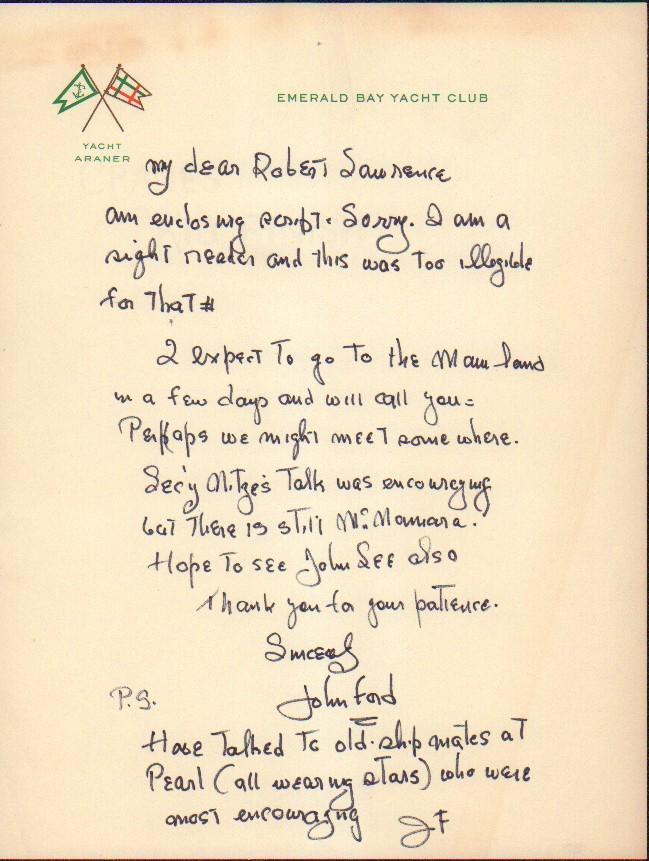 EMERALD BAY YACHT CLUB
YACHT
ARANER
My dear Robert Lawrence
am enclosing script. Sorry. I am a
sight reader and this was too illegible
for that #
I expect to go to the Main land
in a few days and will call you =
Perhaps we might meet somewhere.
Sec'y Nitze's Talk was encouraging
but There is still McNamara.
Hope To see John Lee also
Thank you for your patience.
Sincerely
John Ford
P.S.
Have Talked To old ship mates at
Pearl (all wearing stars) who were
most encouraging
J.F